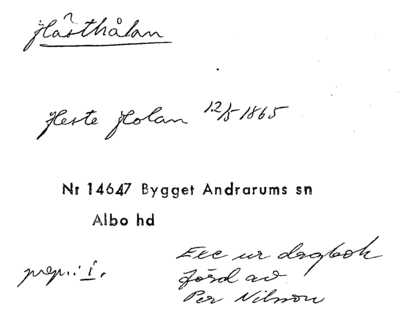 Hästhålan
Heste Holan 12/5 1865
Nr 14647 Bygget Andrarums sn
Albo hd
Exc ur dagbok
prep.: i.
förd av
Per Nilsson